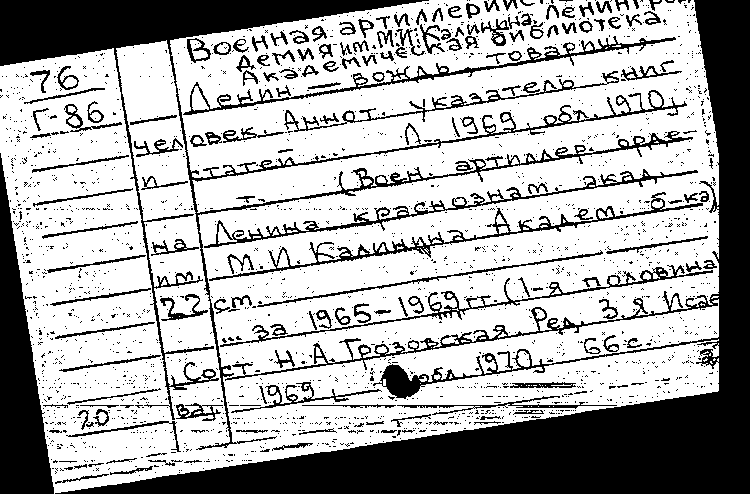 Военная артиллерийс
демия им. М.И. Калинина. Ленингр
Академическая библиотека.
76
Г-86.
Ленин — вождь, товарищ,
человек. Аннот. указатель книг
и статей ... Л., 1969 [обл. 1970]
т. (Воен. артиллер. орде-
на Ленина. краснознам. акад.
им. М.И. Калинина. Академ. б-ка)
22 см.
... за 1965-1969 гг. (1-я половина)
[Сост. Н.А. Грозовская. Ред. З.Я. Исае
ва]. 1969 [обл. 1970]. 66 с.
20